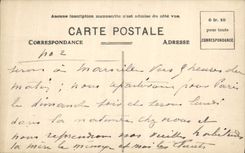 Aucune inscription manuscrite n'est admise du côté vue.
CARTE POSTALE
CORRESPONDANCE
ADRESSE
0 fr. 10
pour toute
CORRESPONDANCE
no 2
à Marseille vers 9 heures du
matin; nous partirons pour Paris
le dimanche soir et serons lundi
dans la matinée chez nous et
nous reprendrons nos vieilles habitudes
la mère le ménage et moi les